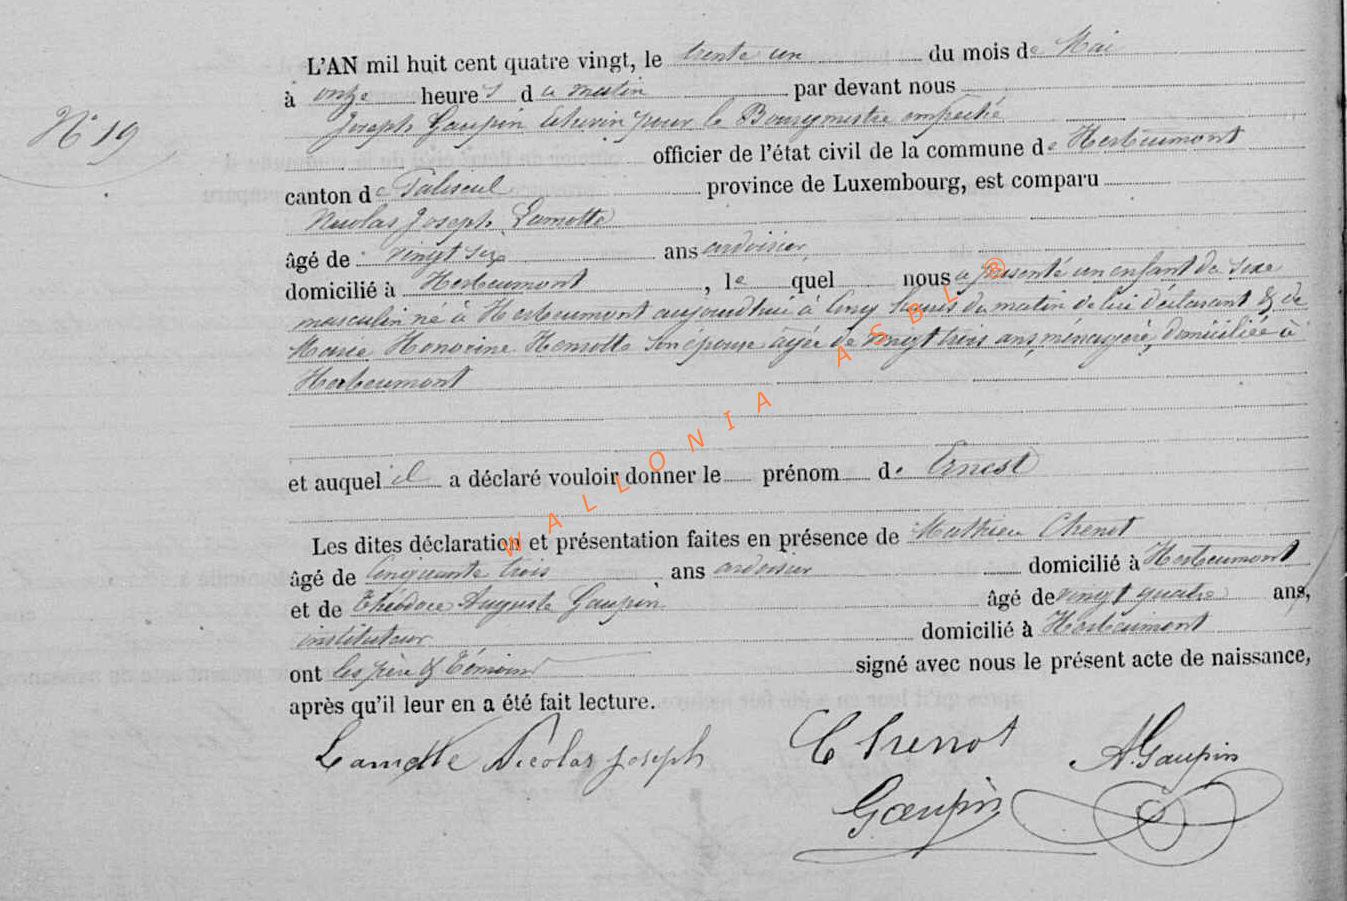 L'AN mil huit cent quatre vingt, le trente un du mois de Mai
à onze heures du matin par devant nous
Joseph Gaupin Echevin pour le Bourgmestre empêché
N° 19
officier de l'état civil de la commune de Herbeumont
canton de Paliseul province de Luxembourg, est comparu
Nicolas Joseph Lamotte
âgé de vingt seize ans ardoisier,
domicilié à Herbeumont, le quel nous a présenté un enfant du sexe
masculin né à Herbeumont aujourd'hui à cinq heures du matin de lui déclarant & de
Marie Honorine Henrotte son épouse âgée de vingt trois ans, ménagère, domiciliée à
Herbeumont
et auquel il a déclaré vouloir donner le prénom de Ernest
Les dites déclaration et présentation faites en présence de Mathieu Chenot
âgé de cinquante trois ans ardoisier domicilié à Herbeumont
et de Théodore Auguste Gaupin âgé de vingt quatre ans,
instituteur domicilié à Herbeumont
ont les père & témoins signé avec nous le présent acte de naissance,
après qu'il leur en a été fait lecture.
Lamotte Nicolas Joseph Chenot A. Gaupin
Gaupin
WALLONIA ASBL ®